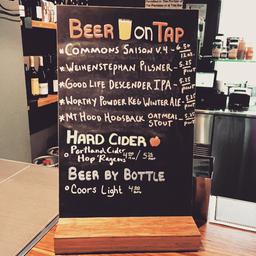 BEER on TAP
*COMMONS SAISON V.4 - 6.50
12 oz.
*WEIHENSTEPHAN PILSNER - 5.25
pint
*GOOD LIFE DESCENDER IPA - 5.25
pint
*WORTHY POWDER KEG WINTER ALE - 5.25
pint
*MT HOOD HOGSBACK OATMEAL STOUT - 5.25
pint
HARD CIDER
Portland Cider
Hop 'Rageous 4.00 / 5.25
BEER BY BOTTLE
Coors Light 4.00